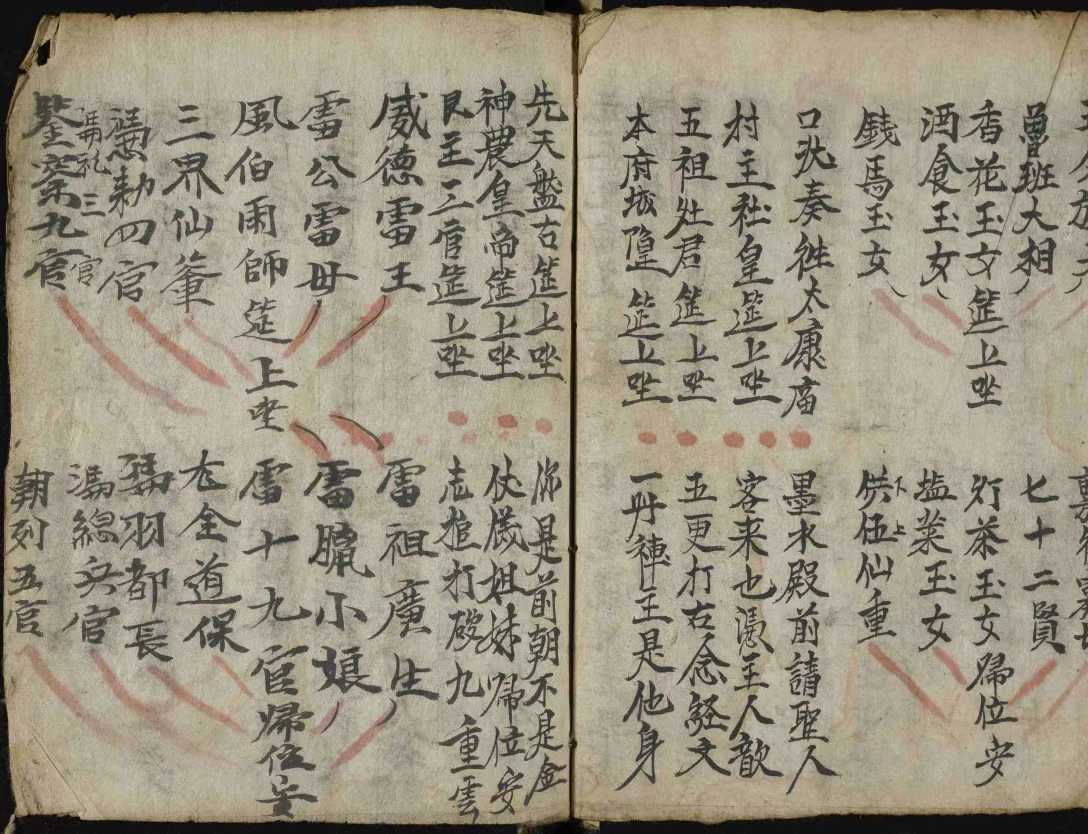 曾班大相
七十二賢
香花玉女筵上坐
灯茶玉女歸位安
酒食玉女
塩菜玉女
錢馬玉女
供伍仙重
下上
口沇奏徃太康庿
墨水殿前請聖人
村主社皇筵上坐
客来也憑主人歆
五祖灶君筵上坐
五更打右念經文
本府城隍筵上坐
一丹禅王是他身
先天盤古筵上坐
你是前朝不是金
神農皇帝筵上坐
伏儀姐妹歸位安
艮王二官筵上坐
志搥打破九重雲
威德雷王
雷祖廣生
雷公雷母
雷臘小娘
風伯雨師筵上坐
雷十九官歸位安
三界仙輩
左全道保
馮勅四官
羽都長
馮礼三官
馮總兵官
鑒案九官
朝列五官